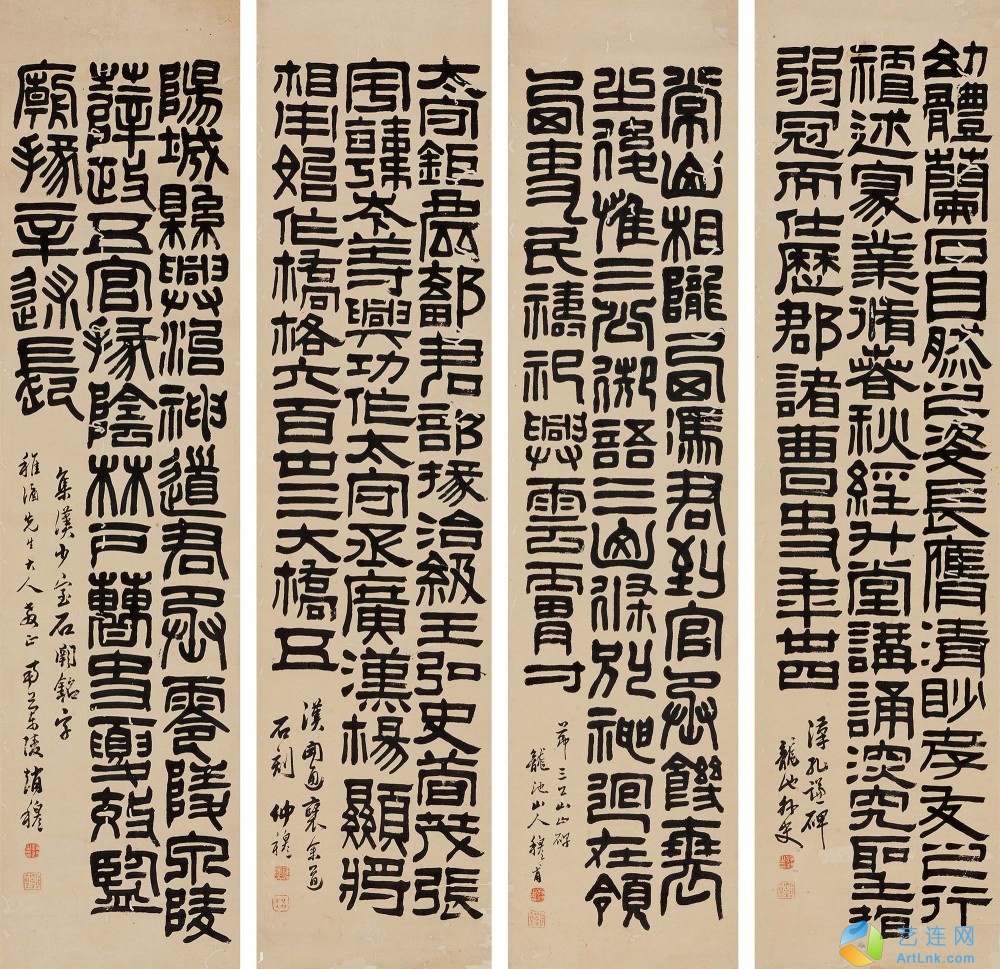 幼體蘭石自然之姿長膺清眇孝友之行
述家業脩春秋經升堂講誦深究聖指
弱冠而仕歷郡諸曹史年廿四
漢孔謙碑
龍池外史
常山相隴西馮君到官承饑衰
之後惟三公御語三山條別神迥在領
西吏民禱祀興雲膚寸
節三公山碑
龍池山人穆甫
太守鉅鹿鄐君部掾治級王弘史荀茂張
宇韓岑等興功作太守丞廣漢楊顯將
相用始作橋格六百卅三大橋五
漢開通褒余道
石刻 仲穆
陽城縣興治神道君丞零陵泉陵
薛政五官掾陰林戶曹史夏效監
廟掾辛述長
集漢少室石闕銘字
稚酒先生大人教正 南蘭陵趙穆
艺连网
ArtLnk.com